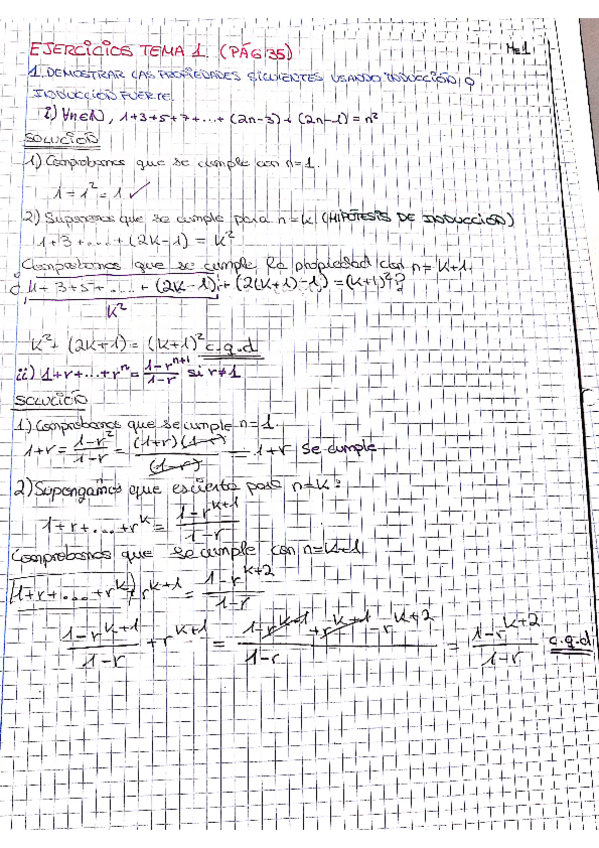 EJERCICIOS TEMA 1. (PÁG 35)
Nº1
1. DEMOSTRAR LAS PROPIEDADES SIGUIENTES USANDO INDUCCIÓN O
INDUCCIÓN FUERTE.
i) ∀n∈N, 1+3+5+7+...+(2n-3)+(2n-1)=n²
SOLUCIÓN
1) Comprobamos que se cumple con n=1.
1=1²=1 ✓
2) Suponemos que se cumple para n=k (HIPÓTESIS DE INDUCCIÓN)
1+3+....+(2k-1) = k²
Comprobamos que se cumple la propiedad con n=k+1.
¿1+3+5+....+(2k-1)+(2(k+1)-1)=(k+1)²?
k²
k²+(2k+1)=(k+1)² c.q.d
ii) 1+r+...+rⁿ = (1-rⁿ⁺¹)/(1-r) si r≠1
SOLUCIÓN
1) Comprobamos que se cumple n=1.
1+r = (1-r²)/(1-r) = ((1+r)(1-r))/(1-r) = 1+r se cumple
2) Supongamos que es cierto para n=k:
1+r+...+r^k = (1-r^(k+1))/(1-r)
Comprobamos que se cumple con n=k+1
1+r+....+r^k+r^(k+1) = (1-r^(k+2))/(1-r)
(1-r^(k+1))/(1-r) + r^(k+1) = (1-r^(k+1)+r^(k+1)-r^(k+2))/(1-r) = (1-r^(k+2))/(1-r) c.q.d